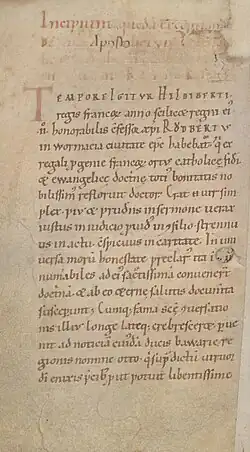 Incipiunt
Aposto
TEMPORE IGITUR HILDIBERTI
regis francoꝝ anno scilicet regni ei
honorabilis
in wormacia ciuitate eps habebat᷑ q̅ ex
regali ꝓgenie francoꝝ ortus catholicę fidei
ꝫ ewangelicę doctrinę toti bonitatis no
bilissim᷒ doctor. Erat ei uir sim
plex pius ꝫ prudens in sermone uerax
iustus in iudicio ꝓuid᷒ in ↄsilio strennu᷒
in actu ↄspicuus in caritate. In uni
uersa morū honestate preclar᷒ ita
numerabiles ad ei᷒ sacratissimā conuenerꝫ
doctrinā ꝫ ab eo ęternę salutis documta
susceperunt. Cumq; fama scę ↄuersatio
nis illi᷒ longe lateq; crebresceret ꝑue
nit ad noticiā ducis bawarię re
gionis nomine otto. q̅ sup̅dictū uirū
enixis p̅cib; put potuit libentissime